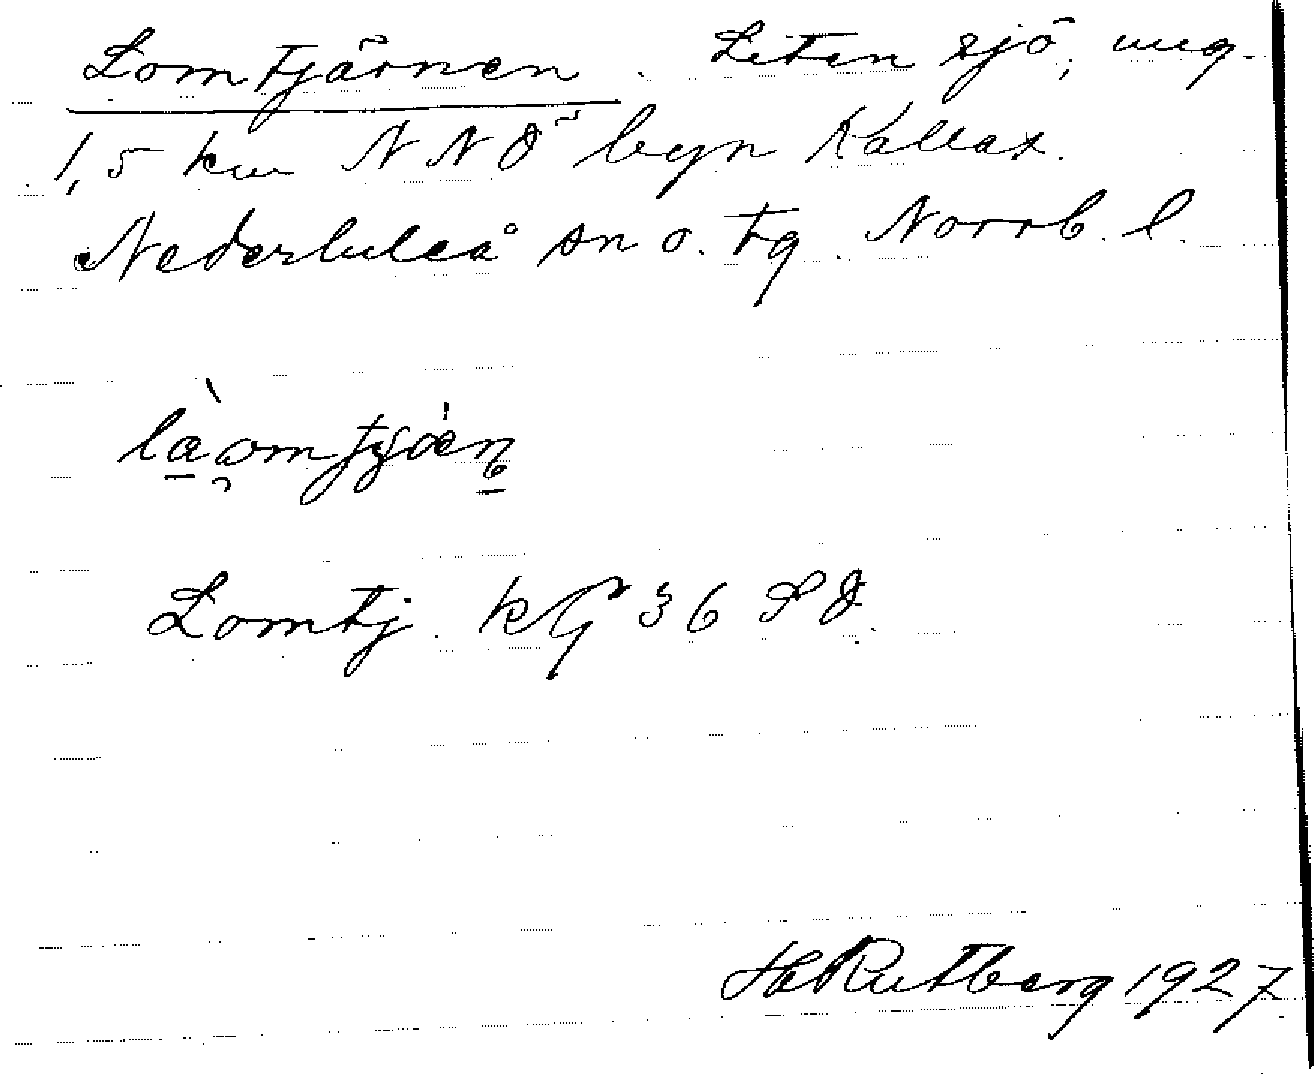 Lomtjärnen. Liten sjö, ung.
1,5 km NNÖ byn Kallax.
Nederluleå sn o. tg. Norrb. l.
Lomtj. kG 36 SO.
H Rutberg 1927